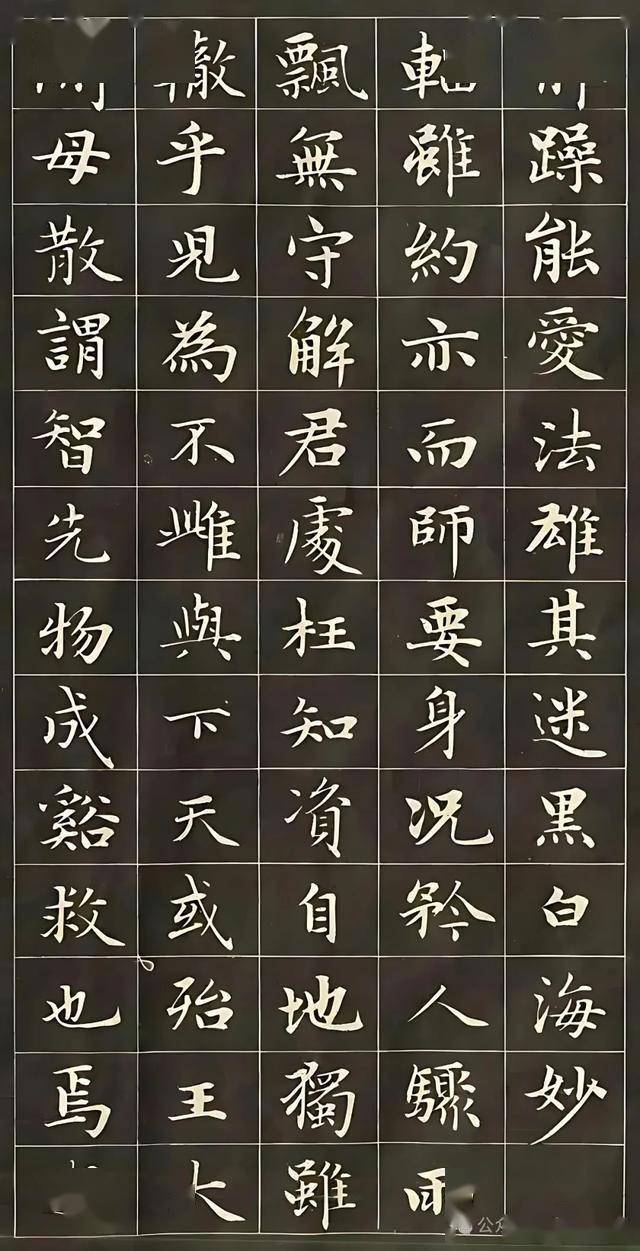 躁能愛法雄其迷黑白海妙
雖約亦而師要身況矜人驟
飄無守解君處枉知資自地獨雖
轍乎兒為不雌與下天或殆王
母散謂智先物成谿救也焉
公众